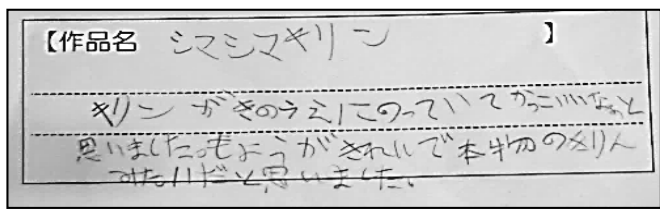 【作品名 シマシマキリン 】
キリンがきのうえにのっていてかっこいいなぁと
思いました。もようがきれいで本物のきりん
みたいだと思いました。